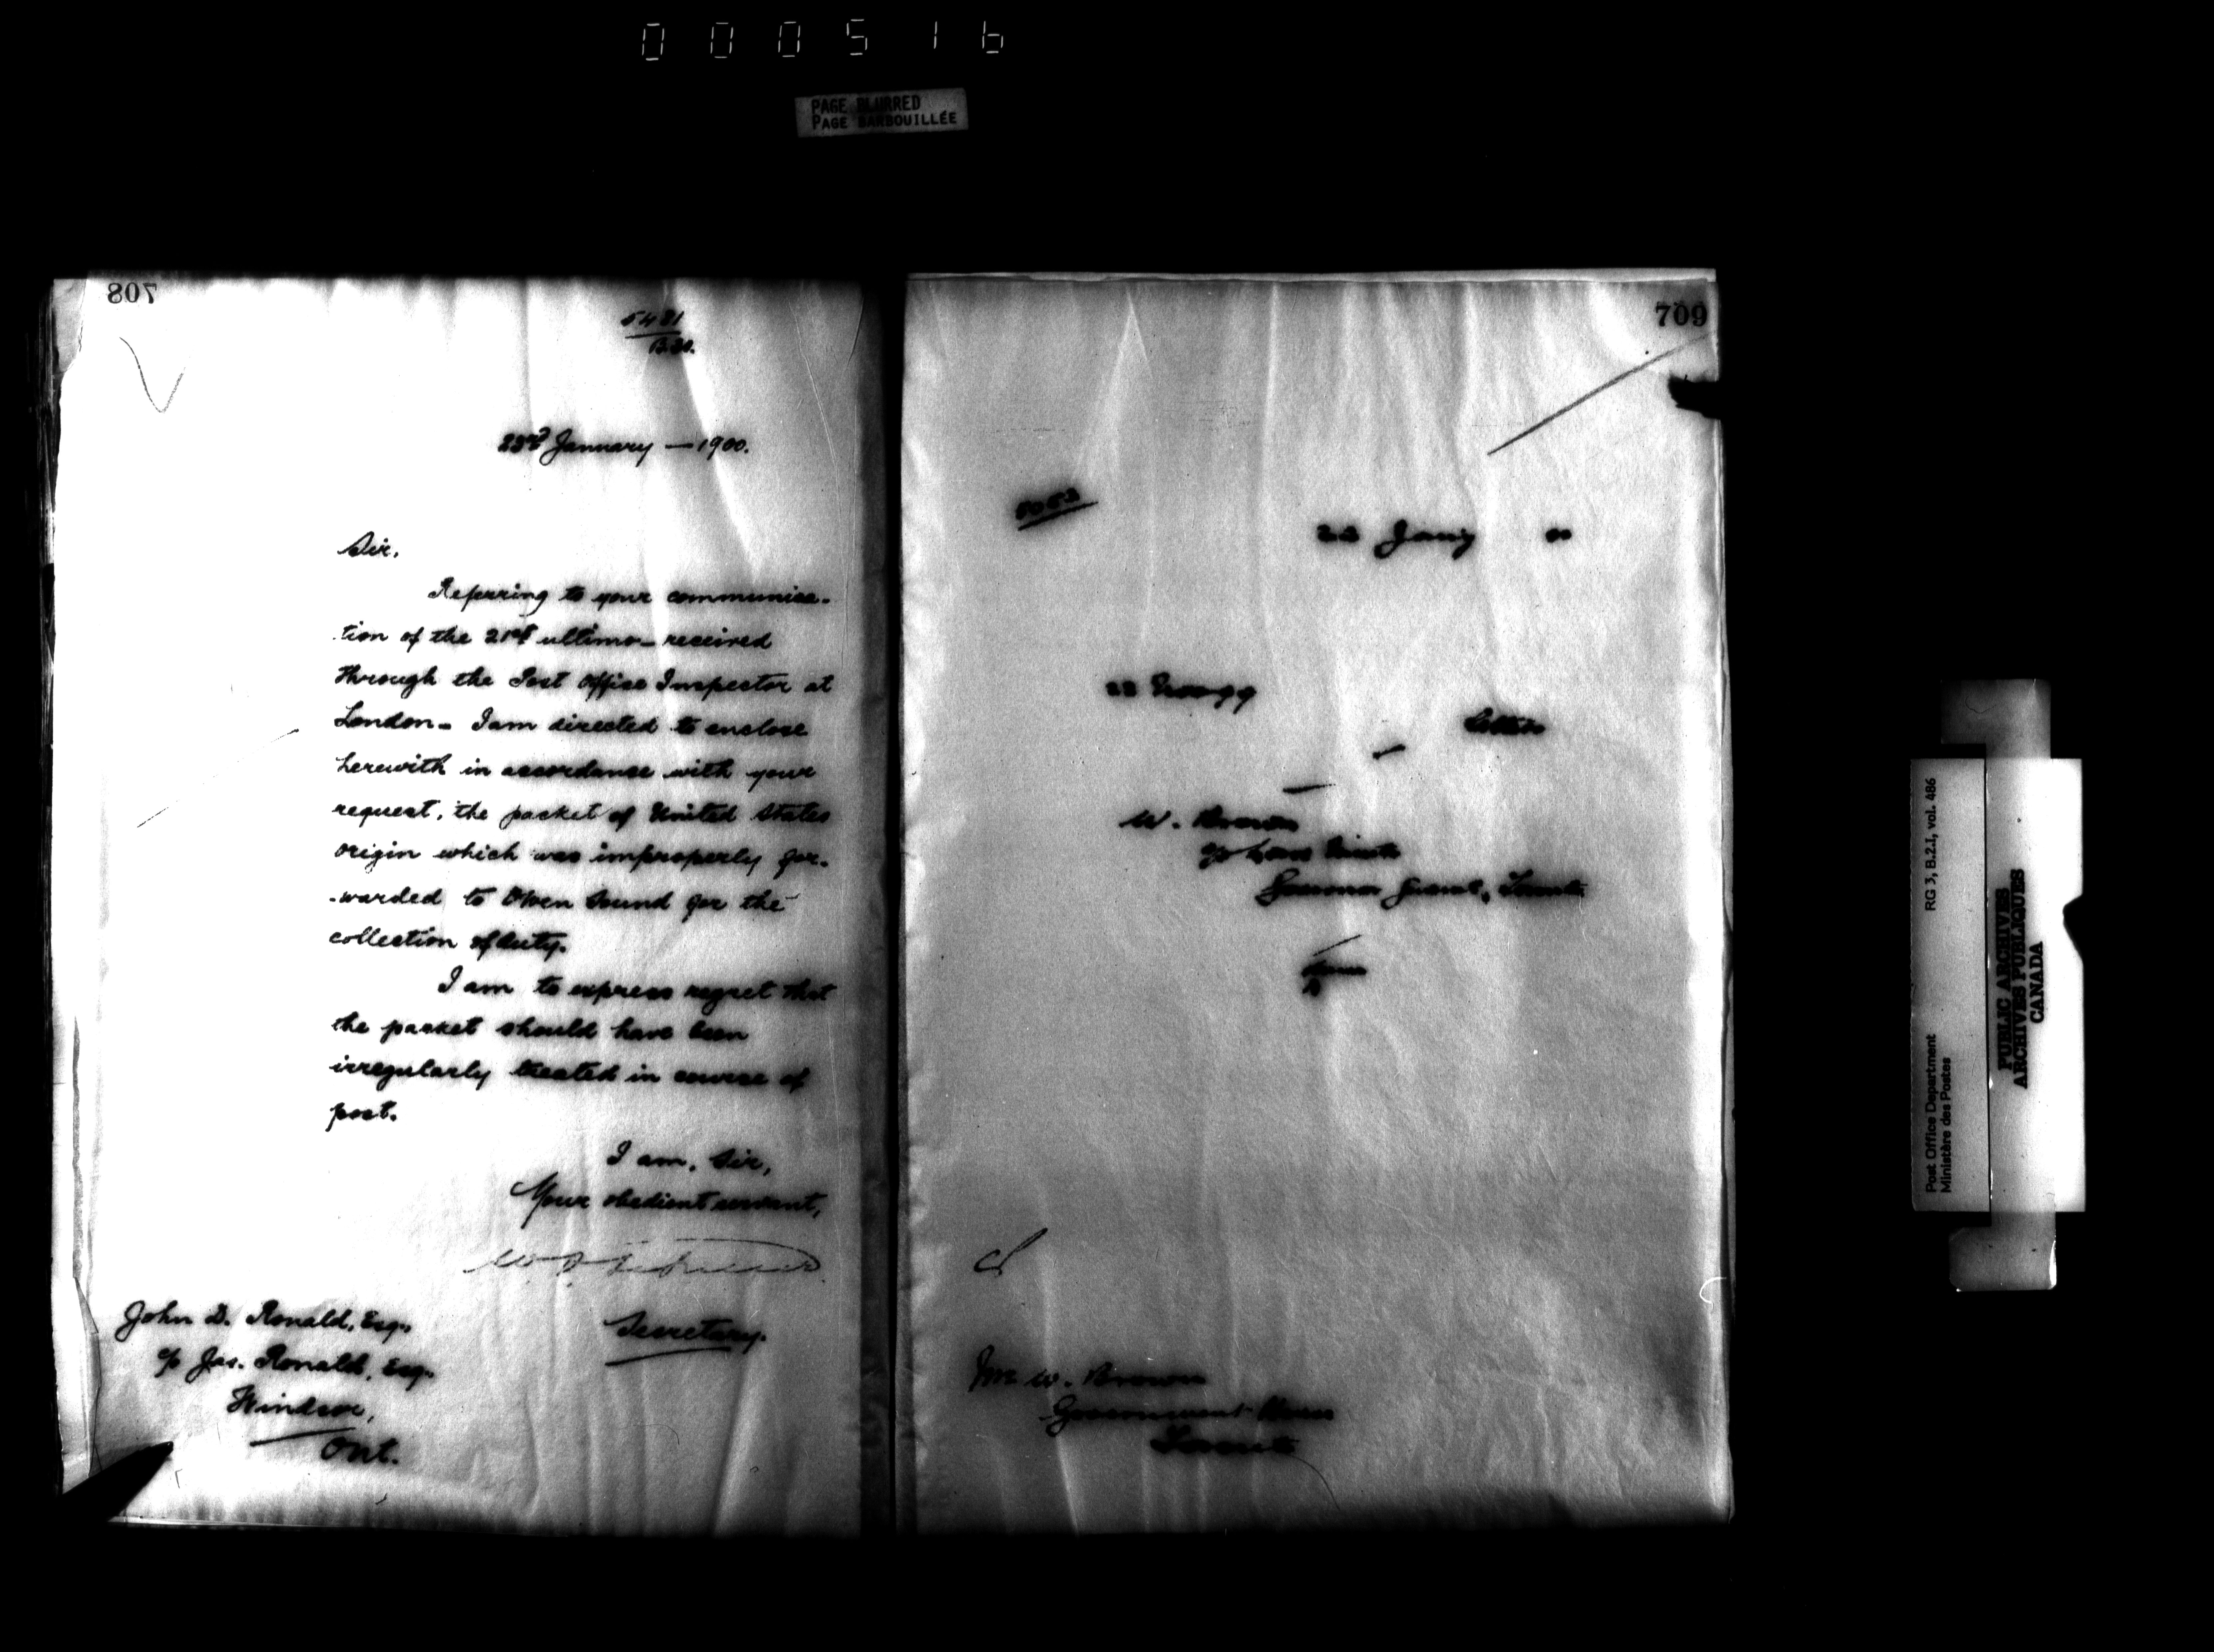 000516
PAGE BLURRED
PAGE BARBOUILLÉE
708
5481
B.30.
23rd January — 1900.
Sir,
Referring to your communica-
-tion of the 21st ultimo - received
through the Post Office Inspector at
London - I am directed to enclose
herewith in accordance with your
request, the packet of United States
origin which was improperly for-
-warded to Owen Sound for the
collection of duty.
I am to express regret that
the packet should have been
irregularly treated in course of
post.
I am, Sir,
Your obedient servant,
Secretary.
John D. Ronald, Esq.,
c/o Jas. Ronald, Esq.,
Windsor,
Ont.
709
22 Jany 00
22
Letter
W. Brown
Governor
Mr W. Brown
Government House
Toronto
RG 3, B.2.I, vol. 486
Post Office Department
Ministère des Postes
PUBLIC ARCHIVES
ARCHIVES PUBLIQUES
CANADA